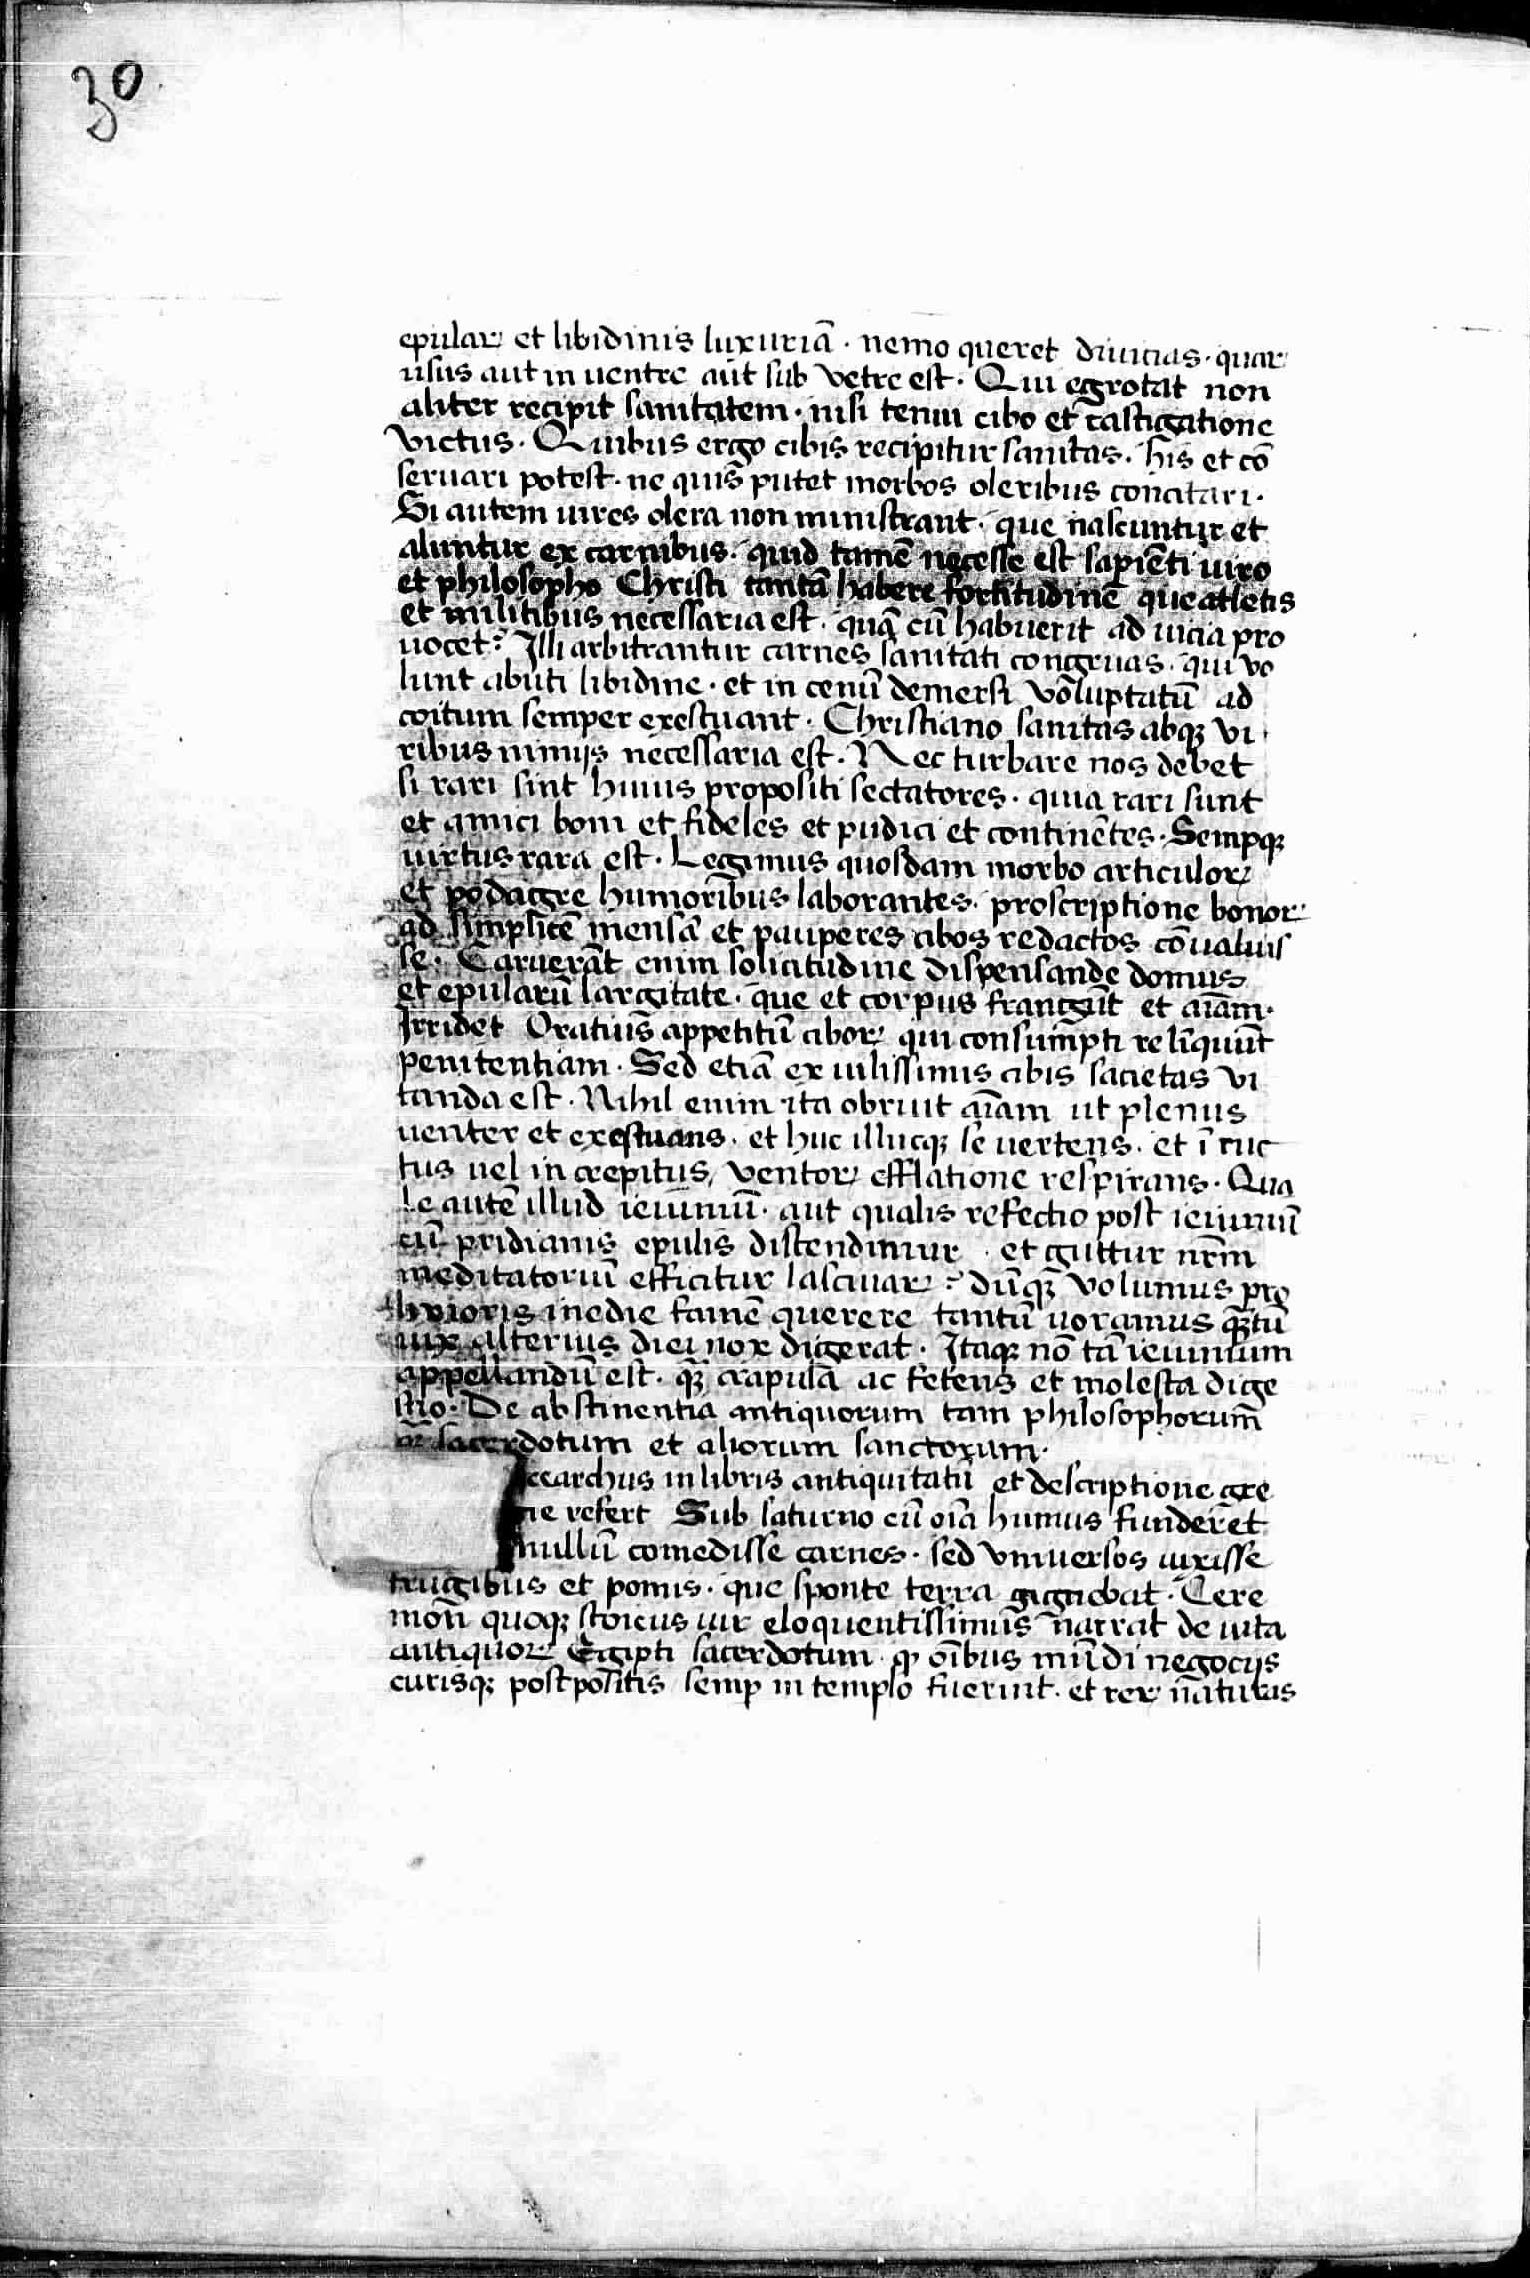 30
epulaꝝ et libidinis luxuriā · nemo queret diuicias · quaꝝ
usus aut in uentre aut sub vētre est · Qui egrotat non
aliter recipit sanitatem · nisi tenui cibo et castigatione
victus · Quibus ergo cibis recipitur sanitas · his et cō
seruari potest · ne quis putet morbos oleribus concitari ·
Si autem uires olera non ministrant · que nascuntur et
aluntur ex carnibus · quid tamē necesse est sapiēti uiro
et philosopho Christi tantā habere fortitudinē que atletis
et militibus necessaria est · quā cū habuerit ad uicia pro
uocet? Illi arbitrantur carnes sanitati congruas · qui vo
lunt abuti libidine · et in cenū demersi voluptatū ad
coitum semper exestuant · Christiano sanitas absqꝫ vi
ribus nimijs necessaria est · Nec turbare nos debet
si rari sint huius propositi sectatores · quia rari sunt
et amici boni et fideles et pudici et continētes · Sempqꝫ
uirtus rara est · Legimus quosdam morbo articuloꝝ
et podagre humoribus laborantes · proscriptione bonoꝝ
ad simplicē mensā et pauperes cibos redactos cōualuis
se · Caruerāt enim solicitudine dispensande domus
et epularū largitate · que et corpus frangūt et aīam ·
Irridet Oratius appetitū ciboꝝ qui consumpti relīquūt
penitentiam · Sed etiā ex uilissimis cibis sacietas vi
tanda est · Nihil enim ita obruit aīam ut plenus
uenter et exestuans · et huc illucqꝫ se uertens · et ī ruc
tus uel in crepitus ventoꝝ efflatione respirans · Qua
le autē illud ieiuniū · aut qualis refectio post ieiuniū
cū pridianis epulis distendimur · et guttur nrm̄
meditatoriū efficitur lasciuiaꝝ? dūqꝫ volumus pro
lixioris inedie famē querere tantū uoramus qꝫtū
uix alterius diei nox digerat · Itaqꝫ nō tā ieiunium
appellandū est · qꝫ crapula ac fetens et molesta dige
stio · De abstinentia antiquorum tam philosophorum
qꝫ sacerdotum et aliorum sanctorum ·
icearchus in libris antiquitatū et descriptione gre
cie refert Sub saturno cū oīa humus funderet
nullū comedisse carnes · sed vniuersos uixisse
frugibus et pomis · que sponte terra gignebat · Cere
mon quoqꝫ stoicus uir eloquentissimus narrat de uita
antiquoꝝ Egipti sacerdotum · ꝙ oībus mūdi negocijs
curisqꝫ postpositis semp in templo fuerint · et reꝝ naturas